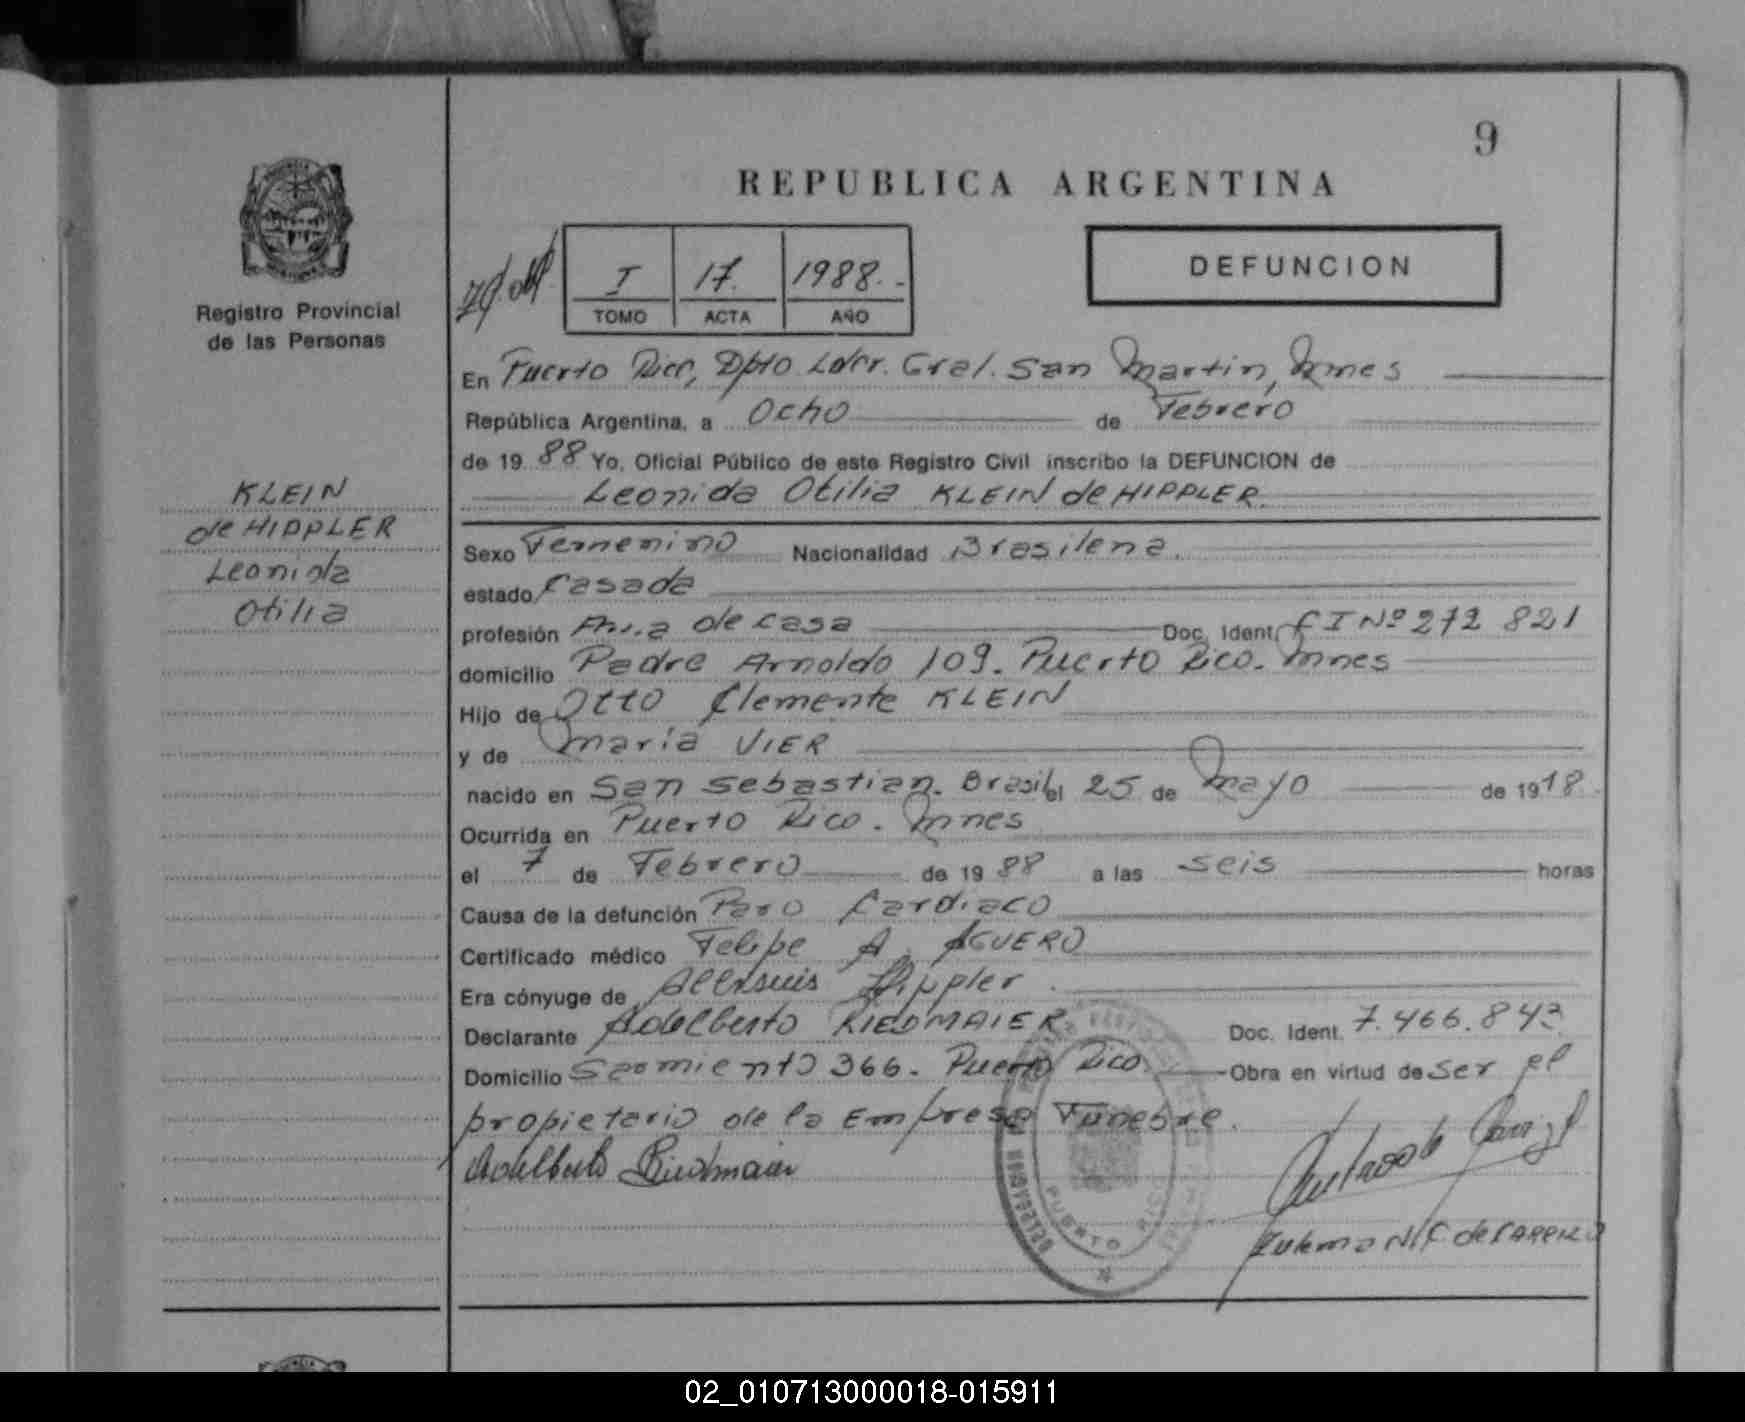 9
REPUBLICA ARGENTINA
I 17. 1988.-
TOMO ACTA AÑO
DEFUNCION
Registro Provincial
de las Personas
KLEIN
de HIPPLER
Leonida
Otilia
En Puerto Rico, Dpto Ldor. Gral. San Martin, Mnes
República Argentina, a Ocho de Febrero
de 19 88 Yo, Oficial Público de este Registro Civil inscribo la DEFUNCION de
Leonida Otilia KLEIN de HIPPLER
Sexo Femenino Nacionalidad Brasilena.
estado Casada
profesión Ama de casa Doc. Ident. CI Nº 272 821
domicilio Padre Arnoldo 109. Puerto Rico. Mnes
Hijo de Otto Clemente KLEIN
y de Maria VIER
nacido en San Sebastian. Brasil el 25 de Mayo de 1918.
Ocurrida en Puerto Rico. Mnes
el 7 de Febrero de 19 88 a las seis horas
Causa de la defunción Paro Cardiaco
Certificado médico Felipe A. AGUERO
Era cónyuge de Hippler.
Declarante Adelberto RIEDMAIER Doc. Ident. 7.466.843
Domicilio Sarmiento 366. Puerto Rico. Obra en virtud de ser el
propietario de la Empresa Funebre.
Adelberto Riedmaier
Zulema N. F. de CARRIZO
PUERTO RICO
02_010713000018-015911